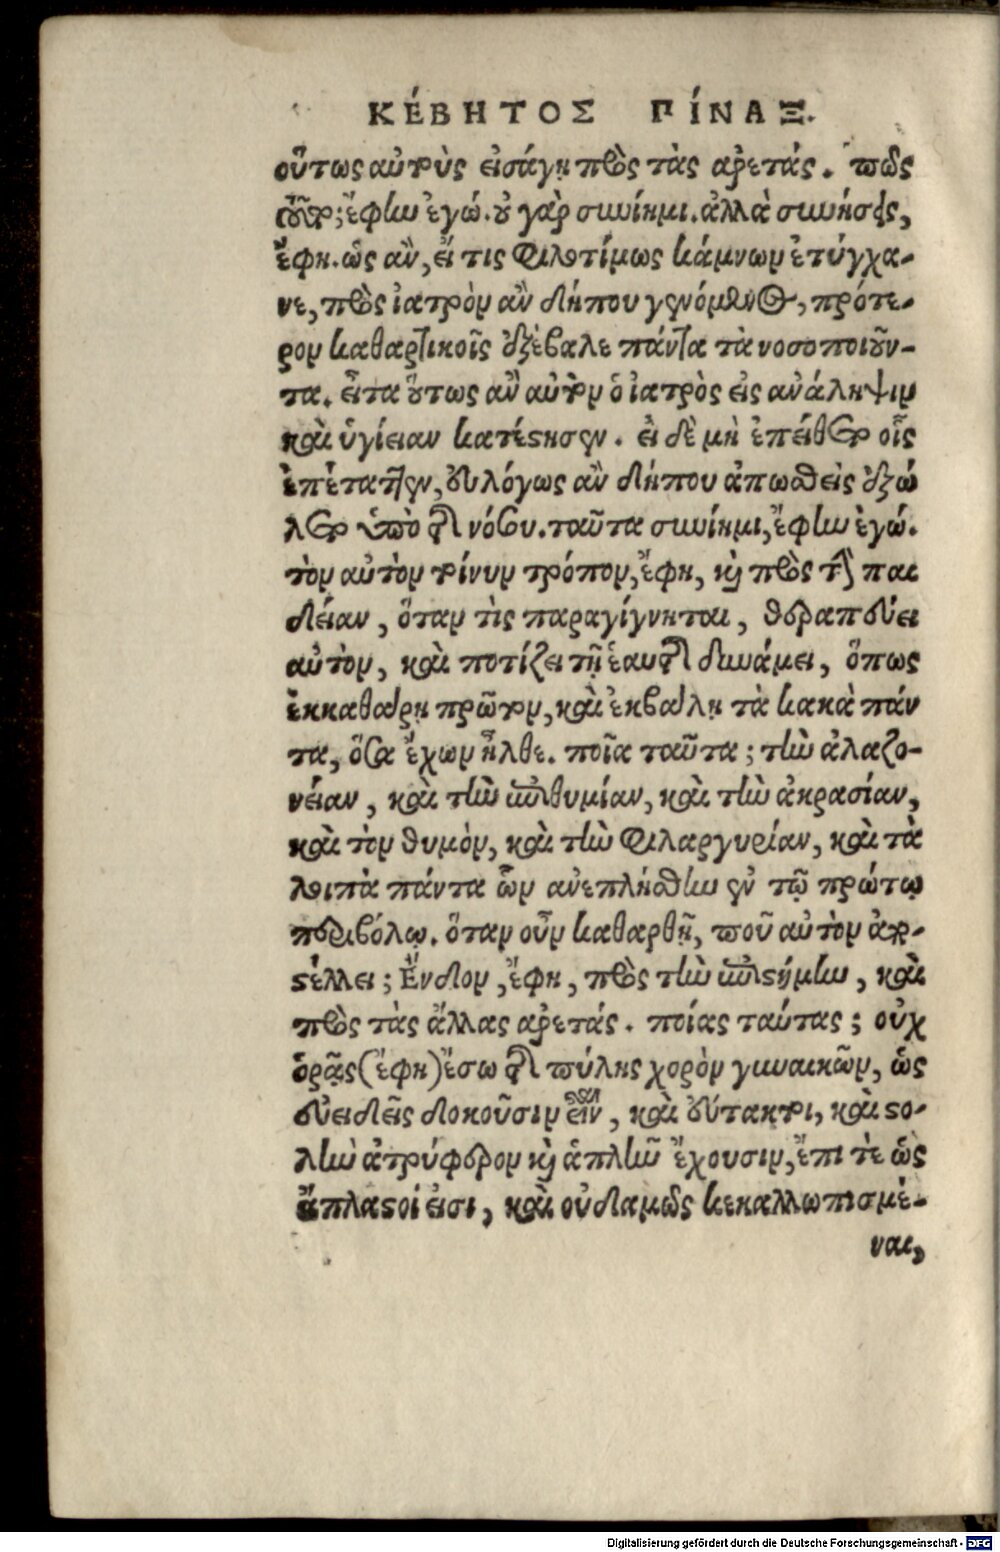 ΚΈΒΗΤΟΣ ΠΊΝΑΞ.
οὕτως αὐτοὺς εἰσάγῃ πρὸς τὰς ἀρετάς. πῶς
οὖν; ἔφην ἐγώ. οὐ γὰρ συνίημι. ἀλλὰ συνήσεις,
ἔφη. ὡς ἂν, εἴ τις φιλοτίμως κάμνων ἐτύγχα-
νε, πρὸς ἰατρὸν ἂν δήπου γενόμενος, πρότε-
ρον καθαρτικοῖς ἐξέβαλε πάντα τὰ νοσοποιοῦν-
τα. εἶτα οὕτως ἂν αὐτὸν ὁ ἰατρὸς εἰς ἀνάληψιν
καὶ ὑγίειαν κατέστησεν. εἰ δὲ μὴ ἐπείθετο οἷς
ἐπέταττεν, εὐλόγως ἂν δήπου ἀπωσθεὶς ἐξώ
λετο ὑπὸ τῆς νόσου. ταῦτα συνίημι, ἔφην ἐγώ.
τὸν αὐτὸν τοίνυν τρόπον, ἔφη, καὶ πρὸς τὴν παι
δείαν, ὅταν τὶς παραγίγνηται, θεραπεύει
αὐτὸν, καὶ ποτίζει τῇ ἑαυτῆς δυνάμει, ὅπως
ἐκκαθάρῃ πρῶτον, καὶ ἐκβάλῃ τὰ κακὰ πάν
τα, ὅσα ἔχων ἦλθε. ποῖα ταῦτα; τὴν ἀλαζο-
νείαν, καὶ τὴν ἐπιθυμίαν, καὶ τὴν ἀκρασίαν,
καὶ τὸν θυμὸν, καὶ τὴν φιλαργυρίαν, καὶ τὰ
λοιπὰ πάντα ὧν ἀνεπλήσθην ἐν τῷ πρώτῳ
περιβόλῳ. ὅταν οὖν καθαρθῇ, ποῦ αὐτὸν ἀπο-
στέλλει; Ἔνδον, ἔφη, πρὸς τὴν ἐπιστήμην, καὶ
πρὸς τὰς ἄλλας ἀρετάς. ποίας ταύτας; οὐχ
ὁρᾷς (ἔφη) ἔσω τῆς πύλης χορὸν γυναικῶν, ὡς
εὐειδεῖς δοκοῦσιν εἶναι, καὶ εὔτακτοι, καὶ στο-
λὴν ἀτρύφερον καὶ ἁπλῆν ἔχουσιν, ἔπι τὲ ὡς
ἄπλαστοί εἰσι, καὶ οὐδαμῶς κεκαλλωπισμέ-
ναι,
Digitalisierung gefördert durch die Deutsche Forschungsgemeinschaft - DFG